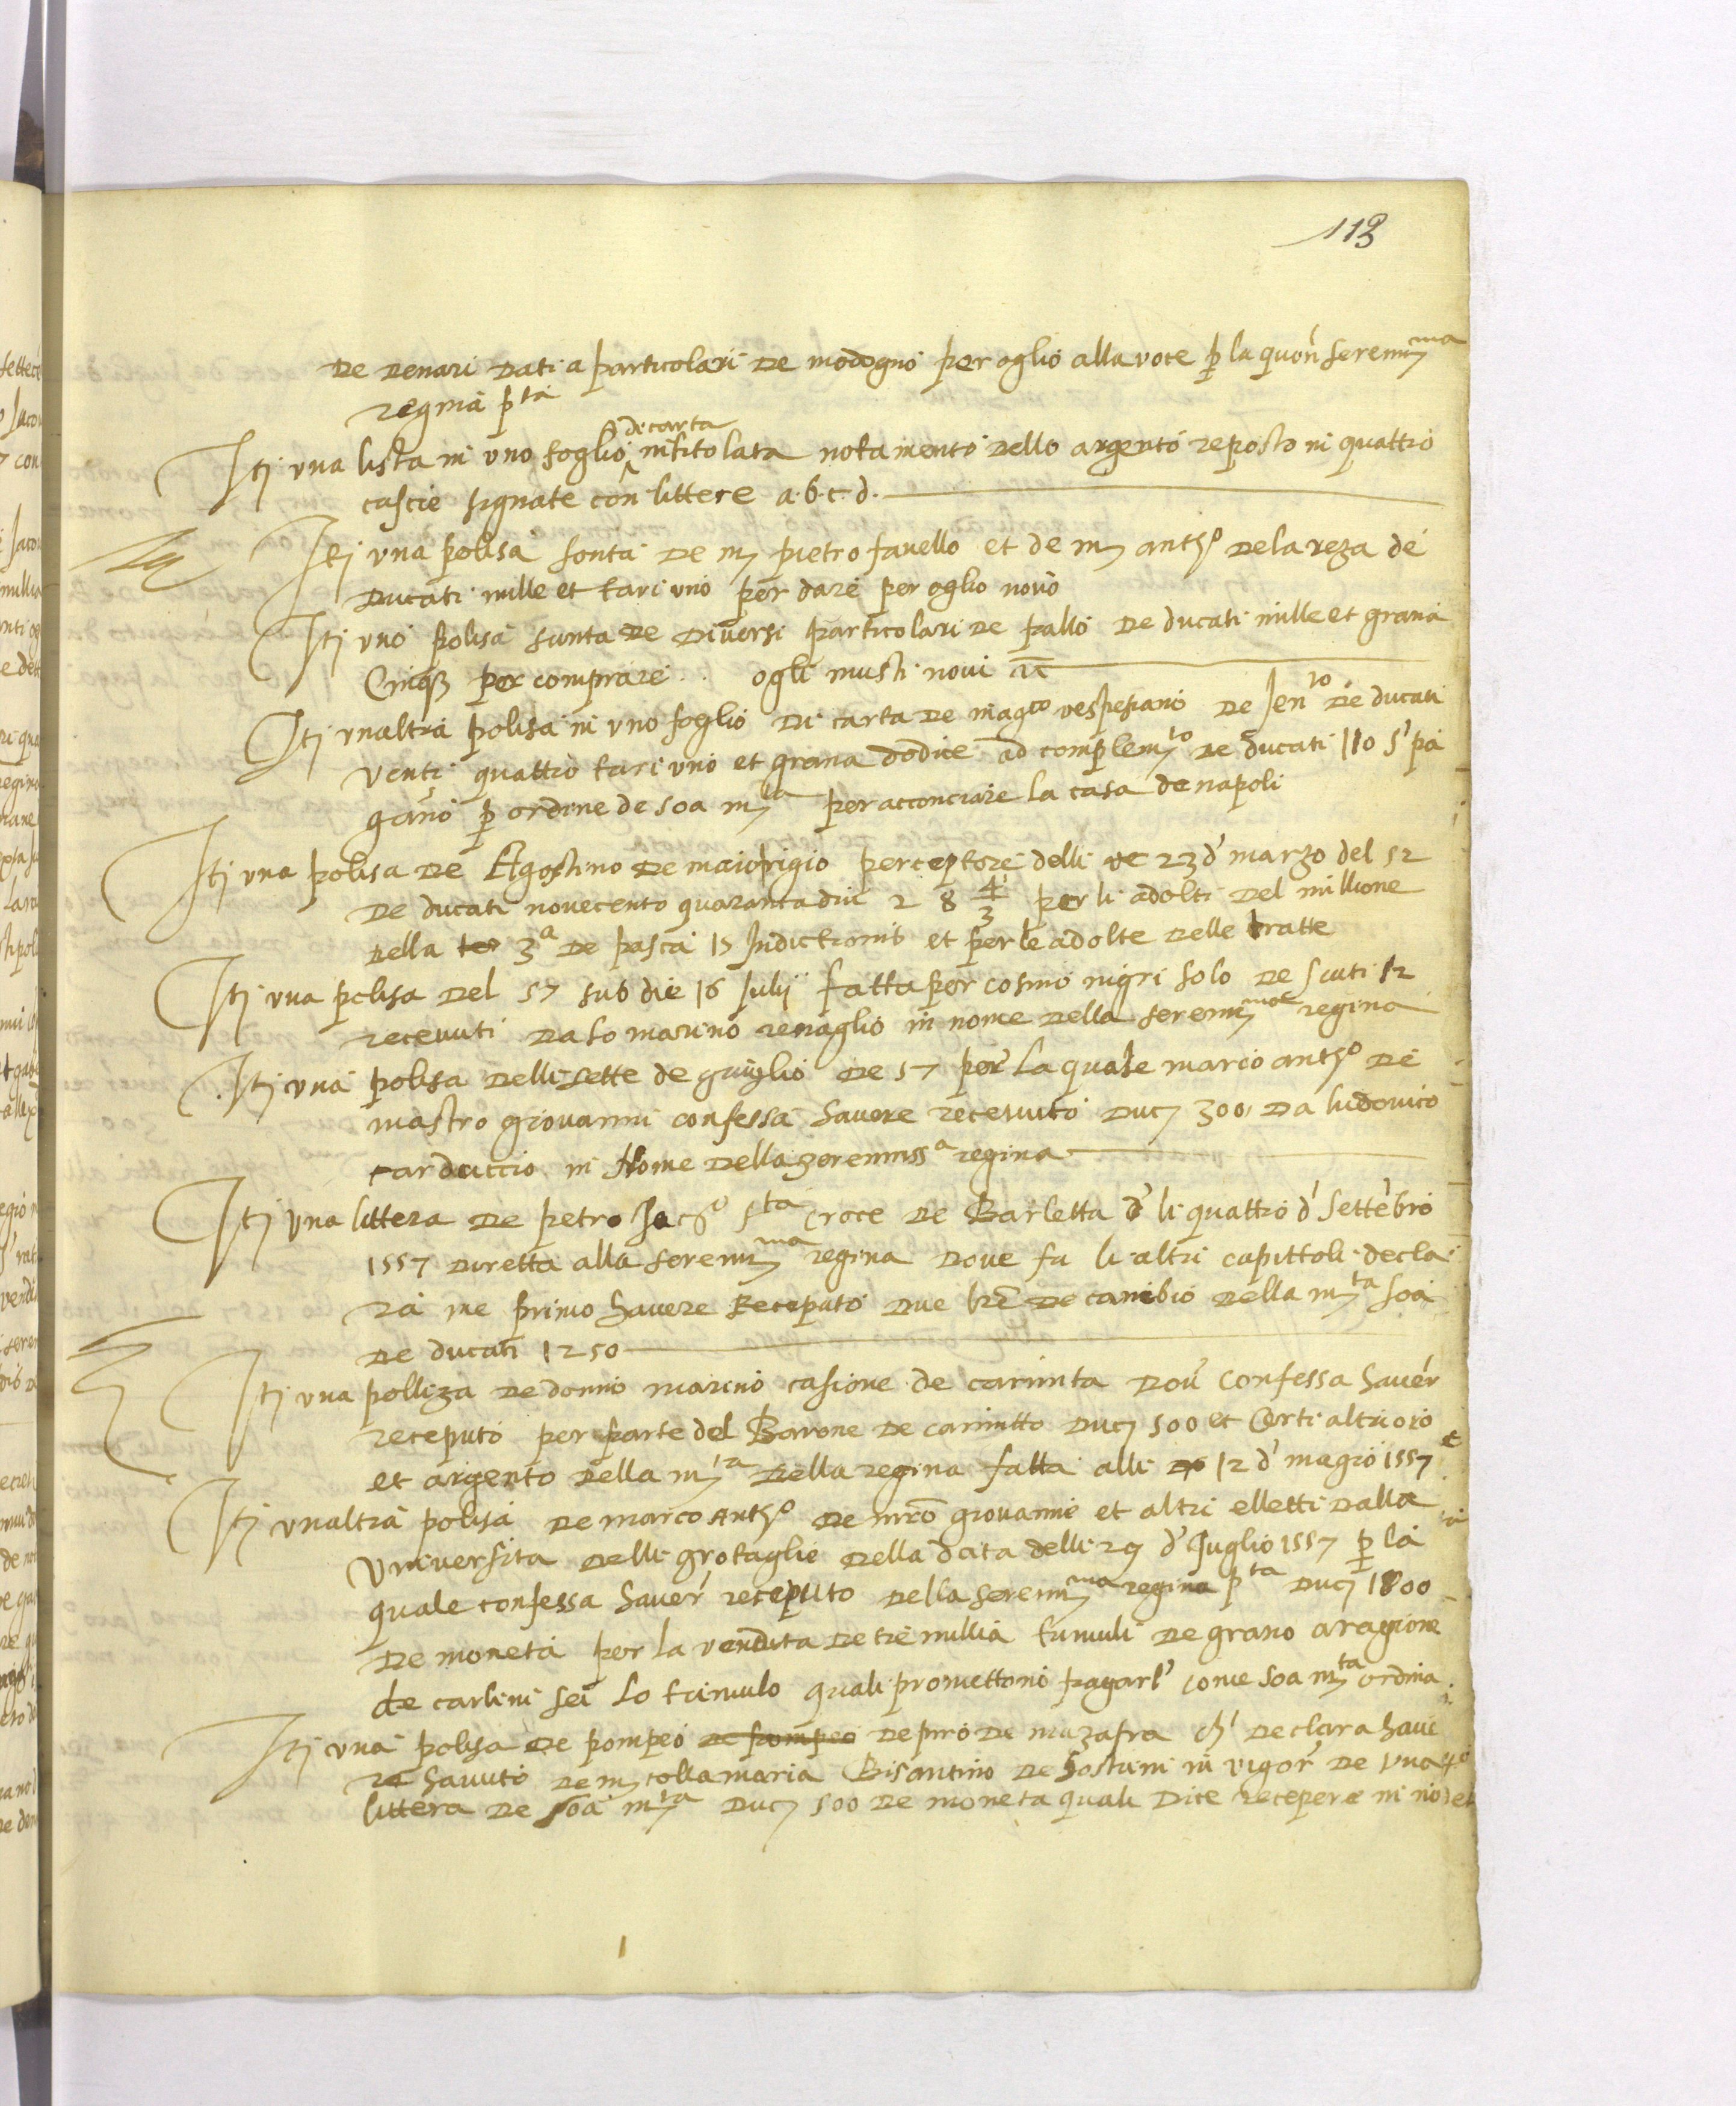 113
de denari dati a particolari de modogno per oglio alla voce p la quon serenima
regina pta
Itj una lista in uno foglio di carta intitolata notamento dello argento reposto in quattro
cascie signate con littere a.b.c.d.
Itj una polisa sonta de mj pietro fanello et de mj antho dela reza de
ducati mille et tari uno per dare per oglio novo
Itj uno polisa sunta de diversi particolari de pallo de ducati mille et grana
Cinqz per comprare ogli musti novi
Itj unaltra polisa in uno foglio di carta de magco vespesiano de Jenro de ducati
venti quattro tari uno et grana dodice ad complemto de ducati 110 s' pa
gano p ordine de soa mta per acconciare la casa de napoli
Itj una polisa de Agostino de maiorigio perceptore delli 23 d' marzo del 52
de ducati novecento quaranta dui 2 8 4/3 per li adolti del millione
della 3a de pasca 15 Indictionis et per le adolte delle tratte
Itj una polisa del 57 sub die 16 Julij fatta per cosmo nigri solo de scuti 12
recevuti da so marino renaglio in nome della serenimae regina
Itj una polisa delli sette de giuglio de 57 per la quale marco antho de
mastro giovanni confessa havere recevuto ducj 300 da ludovico
carduccio in Nome della serenissa regina
Itj una littera de petro Jaco sta Croce de Barletta d' li quattro d' settebro
1557 diretta alla serenima regina dove fu li altri capittoli decla
ra ine primo havere Receputo due lre de cambio della mta soa
de ducati 1250
Itj una polliza de donno marino casione de carinta dov' confessa haver
receputo per parte del Barone de carinitto ducj 500 et Certi altri oro
et argento della mta della regina fatta alli 12 d' magio 1557
Itj unaltra polisa de marco Antho de mro giovanne et altri elletti dalla
Universita delli grotaglie della data delli 29 d' Juglio 1557 p la
quale confessa haver receputo della serenima regina pta ducj 1800
de moneta per la vendita de tre millia tumuli de grano a ragione
de carlini sei lo tumulo quali promettono pagarl' come soa mta ordina
Itj una polisa de pompeo de pompeo de piro de muzafra ch' declara have
re havuto de mj colla maria Bisantino de hostuni in vigor de una
littera de soa mta ducj 500 de moneta quali dice recepere in no del